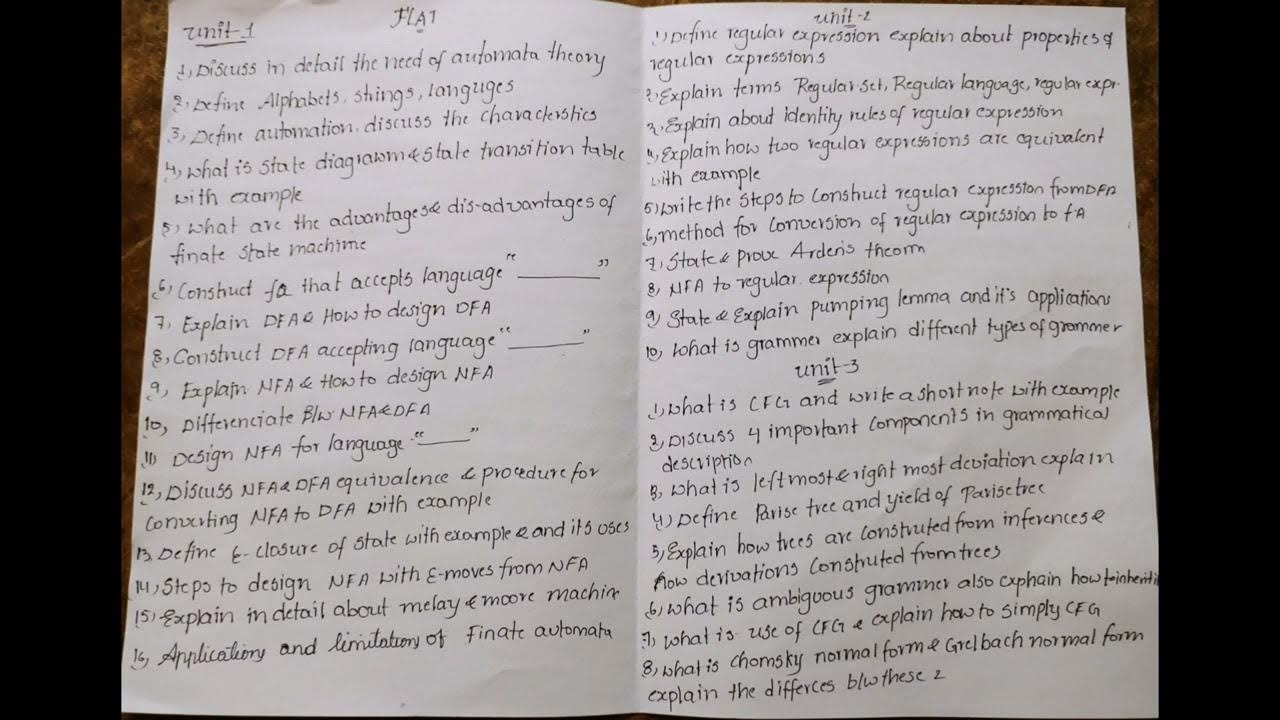 FLAT
unit-1
1, Discuss in detail the need of automata theory
2, Define Alphabets, strings, languges
3, Define automation. discuss the characteristics
4, what is state diagram & state transition table
with example
5, what are the advantages & dis-advantages of
finate state machine
6, Construct fa that accepts language "______"
7, Explain DFA & How to design DFA
8, Construct DFA accepting language "______"
9, Explain NFA & How to design NFA
10, Differenciate B/w NFA & DFA
11, Design NFA for language "_____"
12, Discuss NFA & DFA equivalence & procedure for
Converting NFA to DFA with example
13, Define ε-closure of state with example & and its uses
14, Steps to design NFA with ε-moves from NFA
15, Explain in detail about melay & moore machin
16, Applications and limitation of Finate automata
unit-2
1, Define regular expression explain about properties of
regular expressions
2, Explain terms Regular set, Regular language, regular expr.
3, Explain about identity rules of regular expression
4, Explain how two regular expressions are equivalent
with example
5, write the steps to Construct regular expression from DFA
6, method for Conversion of regular expression to fA
7, State & prove Arden's theorm
8, NFA to regular expression
9, State & Explain pumping lemma and it's applications
10, What is grammer explain different types of grammer
unit-3
1, What is CFG and write a short note with example
2, Discuss 4 important Components in grammatical
description
3, what is left most & right most deviation explain
4, Define Parise tree and yield of Parise tree
5, Explain how trees are construted from inferences &
how derivations Construted from trees
6, what is ambiguous grammer also exphain how to inheriti
7, what is use of CFG & explain how to simply CFG
8, what is chomsky normal form & Grelbach normal form
explain the differces b/w these 2